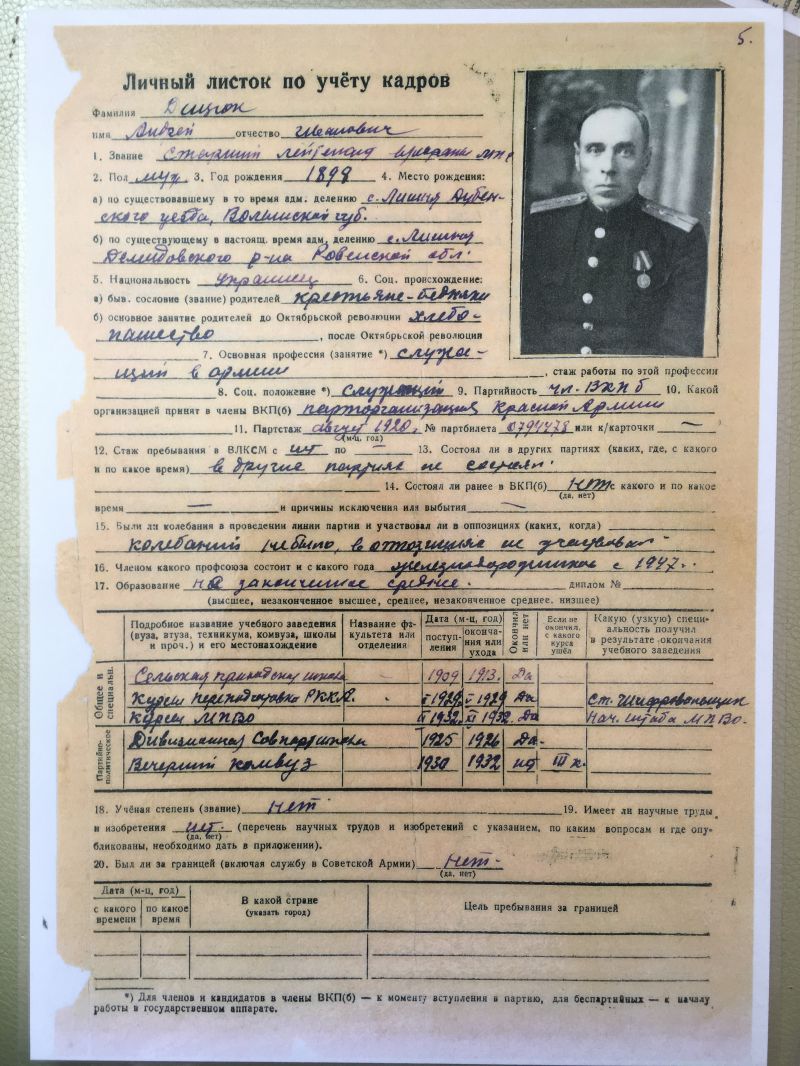 5.
Личный листок по учёту кадров
Фамилия
имя Андрей отчество Иванович
1. Звание Старший лейтенант
2. Пол муж. 3. Год рождения 1898 4. Место рождения:
а) по существовавшему в то время адм. делению с. Лишня Дубен-
ского уезда, Волынской губ.
б) по существующему в настоящ. время адм. делению с. Лишня
Демидовского р-на Ровенской обл.
5. Национальность украинец 6. Соц. происхождение:
а) быв. сословие (звание) родителей крестьяне-бедняки
б) основное занятие родителей до Октябрьской революции хлебо-
пашество, после Октябрьской революции
7. Основная профессия (занятие *) служа-
щий в армии, стаж работы по этой профессии
8. Соц. положение *) служащий 9. Партийность чл. ВКПб 10. Какой
организацией принят в члены ВКП(б) парторганизация Красной Армии
11. Партстаж август 1920. № партбилета 0794478 или к/карточки —
(м-ц, год)
12. Стаж пребывания в ВЛКСМ с нт по — 13. Состоял ли в других партиях (каких, где, с какого
и по какое время) в других партиях не состоял.
14. Состоял ли ранее в ВКП(б) нет с какого и по какое
(да, нет)
время — и причины исключения или выбытия —
15. Были ли колебания в проведении линии партии и участвовал ли в оппозициях (каких, когда)
колебаний не было, в оппозициях не участвовал
16. Членом какого профсоюза состоит и с какого года железнодорожников с 1947.
17. Образование не законченное среднее. диплом №
(высшее, незаконченное высшее, среднее, незаконченное среднее. низшее)
Подробное название учебного заведения (вуза, втуза, техникума, комвуза, школы и проч.) и его местонахождение Название факультета или отделения Дата (м-ц, год) поступления окончания или ухода Окончил или нет Если не окончил, с какого курса ушёл Какую (узкую) специальность получил в результате окончания учебного заведения
Общее и специальн.
Сельская приходская школа 1909 1913. Да
Курсы переподготовки РККА. 1929 1929 Да Ст. Шифровальщик
Курсы МПВО 1932 1932 Да Нач. штаба МПВО.
Партийно-политическое
Дивизионная Совпартшкола 1925 1926 Да.
Вечерний комвуз 1930 1932 нт III к.
18. Учёная степень (звание) нет 19. Имеет ли научные труды
и изобретения нт. (перечень научных трудов и изобретений с указанием, по каким вопросам и где опу-
(да, нет)
бликованы, необходимо дать в приложении).
20. Был ли за границей (включая службу в Советской Армии) нет.
(да, нет)
Дата (м-ц, год) В какой стране Цель пребывания за границей
с какого времени по какое время (указать город)
*) Для членов и кандидатов в члены ВКП(б) — к моменту вступления в партию, для беспартийных — к началу
работы в государственном аппарате.